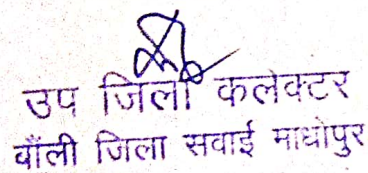 उप जिला कलेक्टर
बौंली जिला सवाई माधोपुर